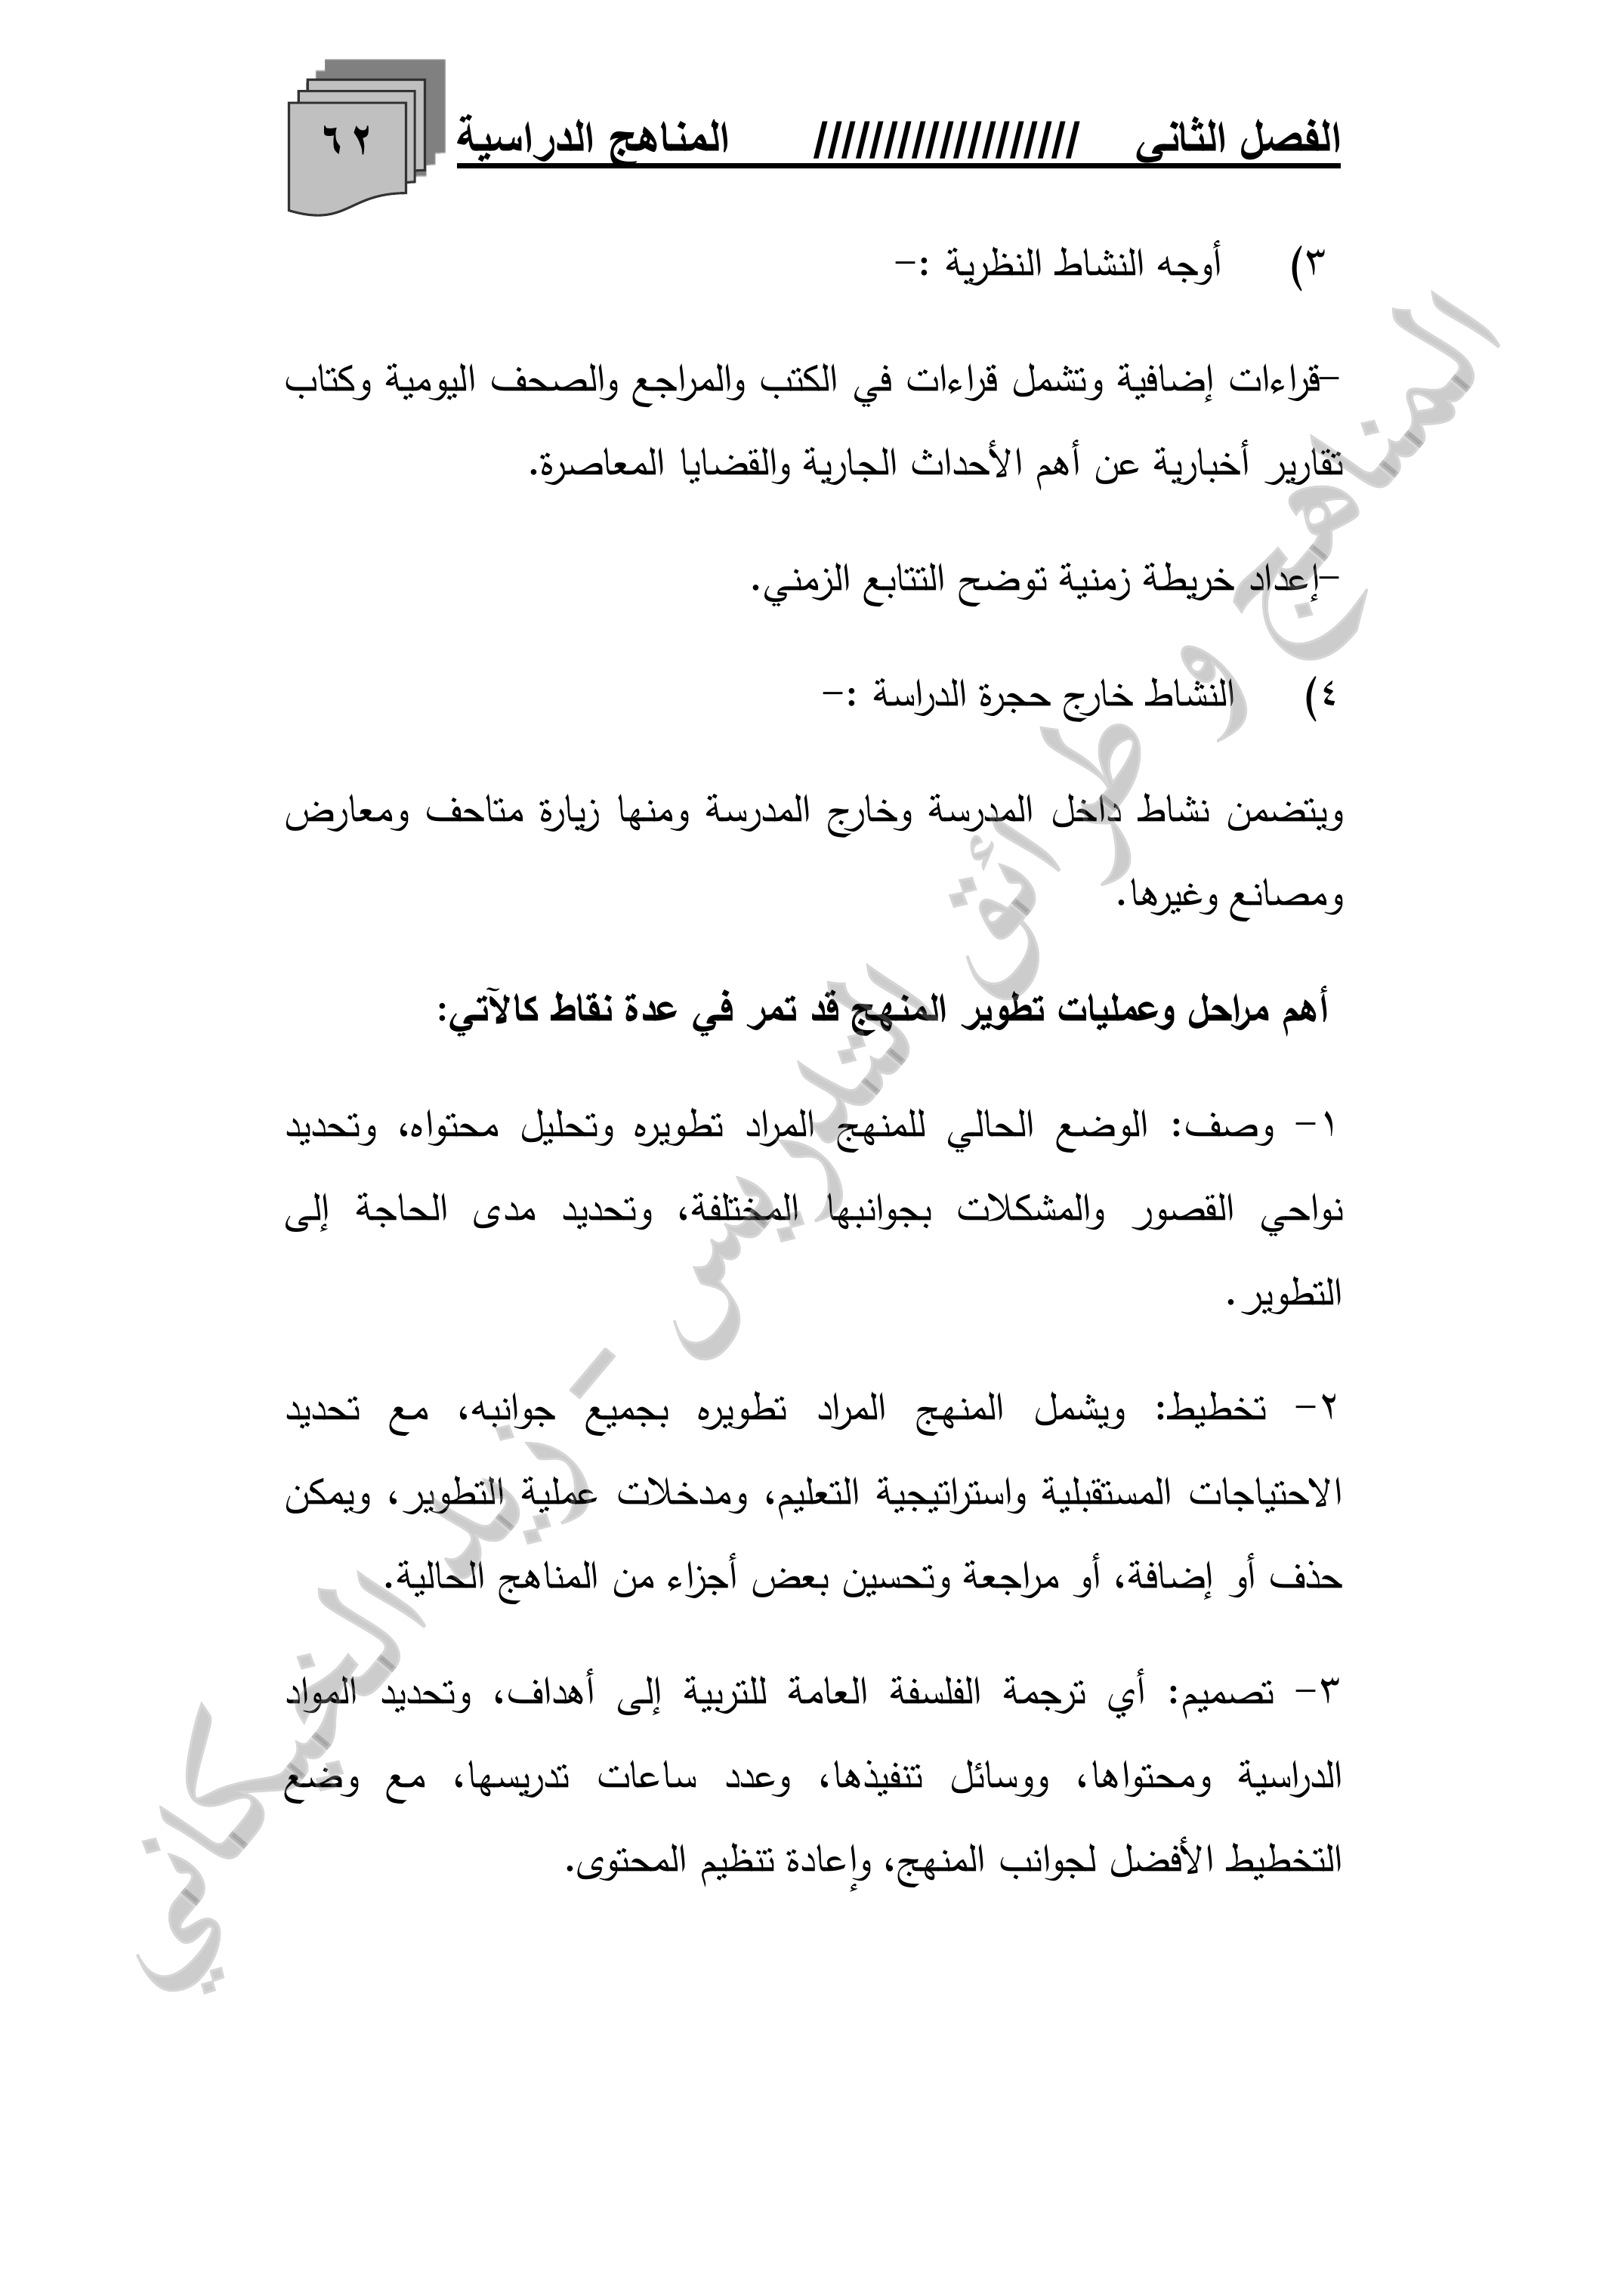 الفصل الثاني /////////////////// المناهج الدراسية ٦٢
٣) أوجه النشاط النظرية :-
-قراءات إضافية وتشمل قراءات في الكتب والمراجع والصحف اليومية وكتاب
تقارير أخبارية عن أهم الأحداث الجارية والقضايا المعاصرة.
-إعداد خريطة زمنية توضح التتابع الزمني.
٤) النشاط خارج حجرة الدراسة :-
ويتضمن نشاط داخل المدرسة وخارج المدرسة ومنها زيارة متاحف ومعارض
ومصانع وغيرها.
أهم مراحل وعمليات تطوير المنهج قد تمر في عدة نقاط كالآتي:
١- وصف: الوضع الحالي للمنهج المراد تطويره وتحليل محتواه، وتحديد
نواحي القصور والمشكلات بجوانبها المختلفة، وتحديد مدى الحاجة إلى
التطوير.
٢- تخطيط: ويشمل المنهج المراد تطويره بجميع جوانبه، مع تحديد
الاحتياجات المستقبلية واستراتيجية التعليم، ومدخلات عملية التطوير، ويمكن
حذف أو إضافة، أو مراجعة وتحسين بعض أجزاء من المناهج الحالية.
٣- تصميم: أي ترجمة الفلسفة العامة للتربية إلى أهداف، وتحديد المواد
الدراسية ومحتواها، ووسائل تنفيذها، وعدد ساعات تدريسها، مع وضع
التخطيط الأفضل لجوانب المنهج، وإعادة تنظيم المحتوى.
المناهج و طرائق التدريس - زيد الخيكاني